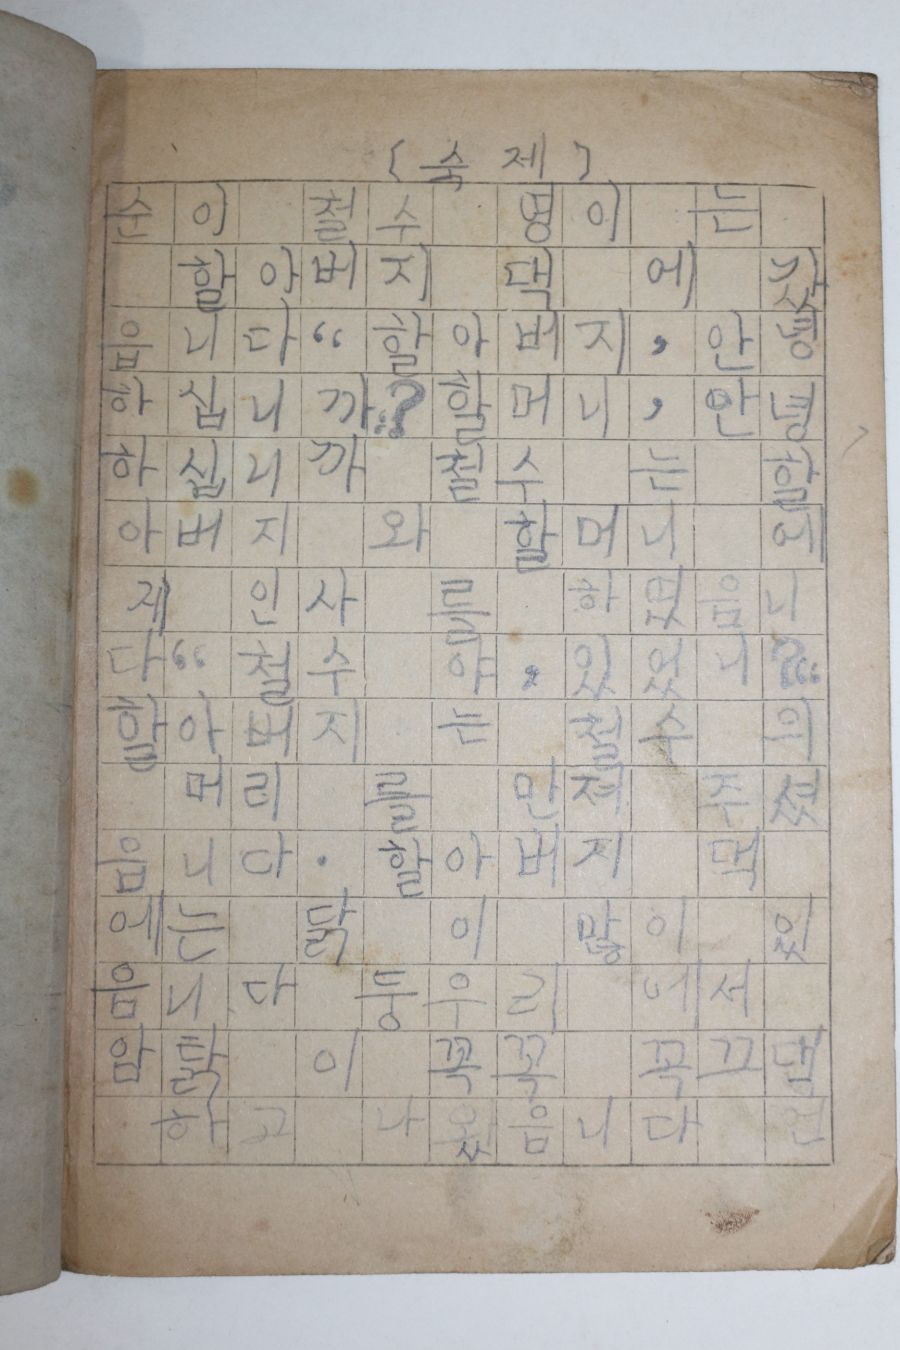 [숙제]
순이 철수 영이 는
할아버지 댁 에 갔
음니다“ 할아버지, 안녕
하십니까? 할머니, 안녕
하십니까 철수 는 할
아버지 와 할머니 에
제 인사 를 하였음니
다“ 철수 야, 있었니?“
할아버지 는 철수 의
머리 를 만져 주셨
음니다. 할아버지 댁
에는 닭 이 많이 있
음니다 둥우리 에서
암닭 이 꼭꼭 꼭끄댑
하고 나왔음니다